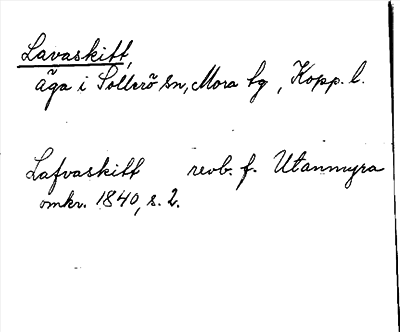 Lavaskift,
äga i Sollerö sn, Mora tg, Kopp. l.
Lafvaskift revb. f. Utanmyra
omkr. 1840, s. 2.